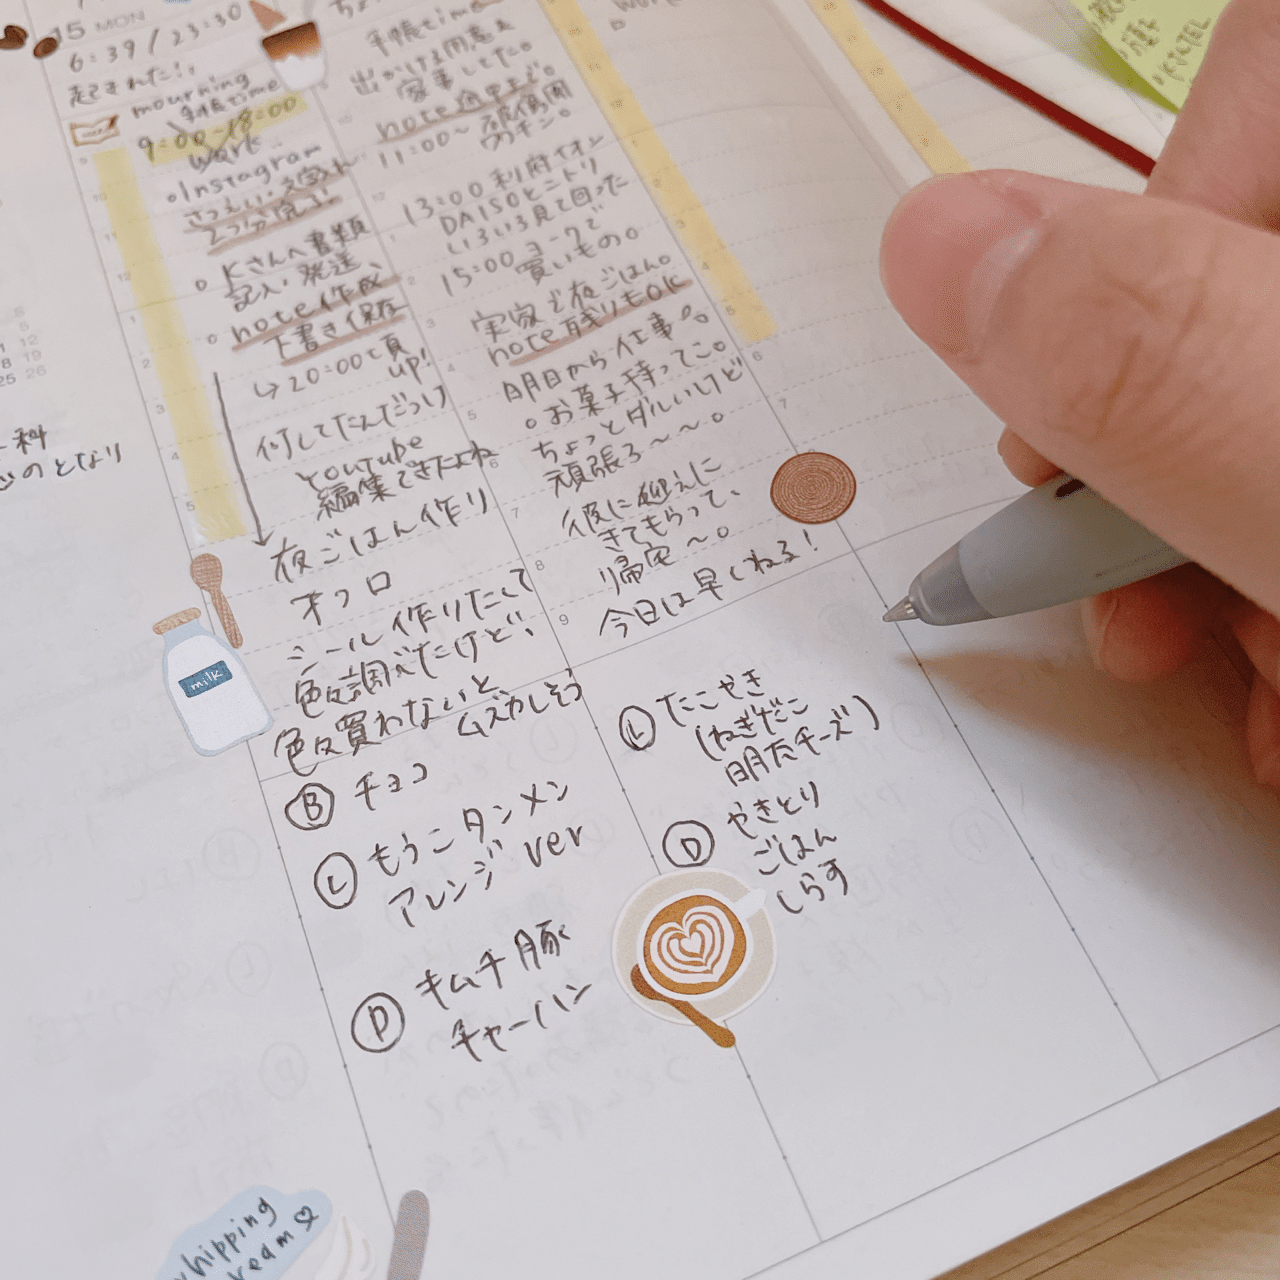 15 MON
6:39/23:30
起きれた!!
mourning
手帳time
9:00-18:00
work
Instagram
2つ分完了!
Kさんへ書類
記入・発送、
note作成
下書き保存
↳20:00に頁
up!
何してたんだっけ
YouTube
編集できたよね
夜ごはん作り
オフロ
シール作りたくて
色々調べたけど、
色々買わないと、
ムズカしそう
milk
Ⓑ チョコ
Ⓛ もうこタンメン
アレンジver
Ⓓ キムチ豚
チャーハン
手帳time
出かける用意&
家事してた。
note途中まで。
11:00~
13:00 利府イオン
DAISOとニトリ
いろいろ見て回った
15:00 ヨークで
買いもの。
実家で夜ごはん。
note残りもOK
明日から仕事
お菓子持ってこ。
ちょっとダルいけど
頑張ろ〜〜。
彼に迎えに
きてもらって、
帰宅〜。
今日は早くねる!
Ⓛ たこやき
(ねぎだこ
明太チーズ)
Ⓓ やきとり
ごはん
しらす
科
のとなり
whipping
cream♡